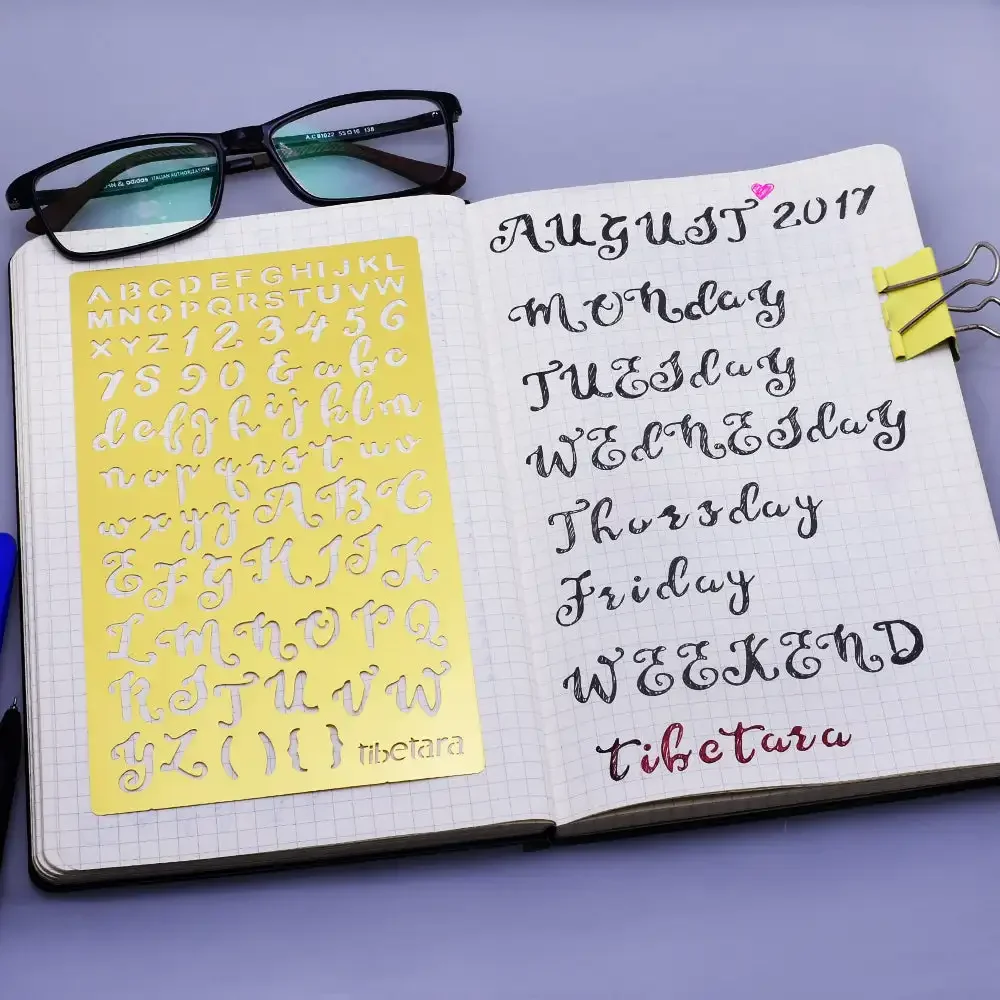 & adidas ITALIAN AUTHORIZATION
A.C 81022 55□16 138
A B C D E F G H I J K L
M N O P Q R S T U V W
X Y Z 1 2 3 4 5 6
7 8 9 0 & a b c
d e f g h i j k l m
n o p q r s t u v
w x y z A B C
E F G H I J K
L M N O P Q
R S T U V W
Y Z ( ) { } tibetara
AUGUST 2017
MONday
TUESday
WEdNESday
Thursday
Friday
WEEKEND
tibetara